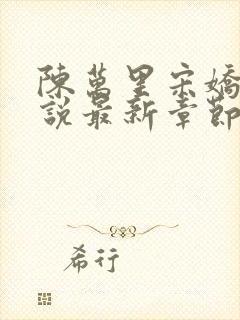 陳萬里宋嬌
說最新章節
希行